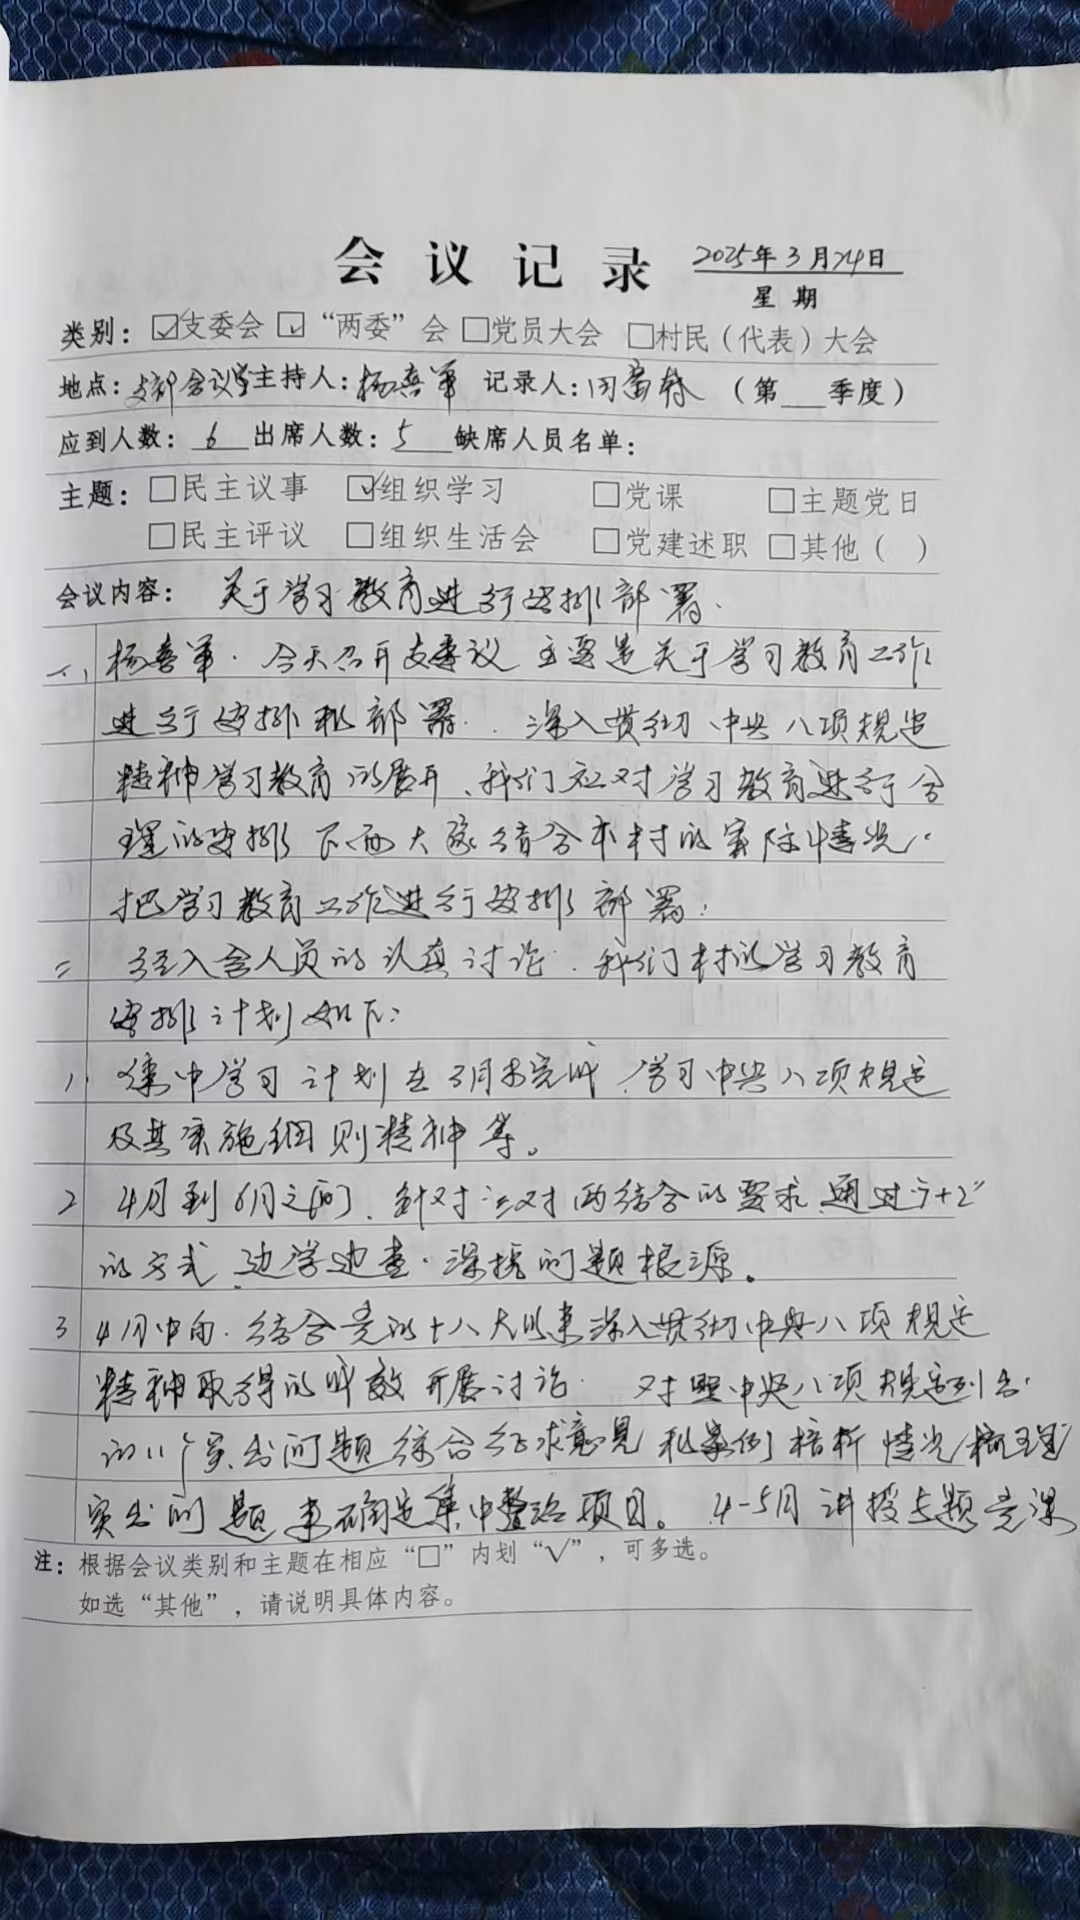 会议记录 2025年3月24日
星期
类别：☑支委会 ☑“两委”会 □党员大会 □村民（代表）大会
地点：支部会议室 主持人：杨喜军 记录人： （第 季度）
应到人数：6 出席人数：5 缺席人员名单：
主题：□民主议事 ☑组织学习 □党课 □主题党日
□民主评议 □组织生活会 □党建述职 □其他（ ）
会议内容：关于学习教育进行安排部署.
一、杨喜军. 今天召开支委议 主要是关于学习教育工作
进行安排和部署. 深入贯彻中央八项规定
精神学习教育的展开、我们应对学习教育进行合
理的安排 下面大家结合本村的实际情况.
把学习教育工作进行安排部署:
二 经至入会人员的认真讨论. 我们村的学习教育
安排计划如下:
1、集中学习计划在3月末完成, 学习中央八项规定
及其实施细则精神等。
2 4月到6月之间、针对三对两结合的要求 通过“1+2”
的方式 边学边查. 深挖问题根源。
3 4月中旬. 结合党的十八大以来深入贯彻中央八项规定
精神取得的成效开展讨论. 对照中央八项规定列出.
的11个突出问题 综合征求意见和案例 情况梳理
突出问题 来确定集中整治项目。4-5月讲授专题党课
注：根据会议类别和主题在相应“□”内划“√”，可多选。
如选“其他”，请说明具体内容。